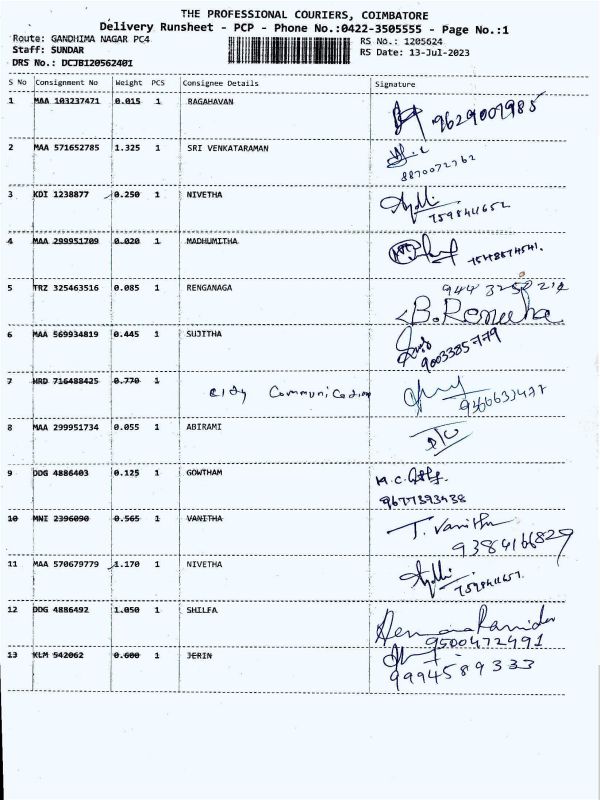 THE PROFESSIONAL COURIERS, COIMBATORE
Delivery Runsheet - PCP - Phone No.:0422-3505555 - Page No.:1
Route: GANDHIMA NAGAR PC4 RS No.: 1205624
Staff: SUNDAR RS Date: 13-Jul-2023
DRS No.: DCJB120562401
S No Consignment No Weight PCS Consignee Details Signature
1 MAA 103237471 0.015 1 RAGAHAVAN 9629001985
2 MAA 571652785 1.325 1 SRI VENKATARAMAN
8870072762
3 KDI 1238877 0.250 1 NIVETHA
759841652
4 MAA 299951709 0.020 1 MADHUMITHA
5 TRZ 325463516 0.085 1 RENGANAGA
B. Renuka
6 MAA 569934819 0.445 1 SUJITHA
9003385779
7 HRD 716488425 0.770 1 City Communication
8 MAA 299951734 0.055 1 ABIRAMI
9 DDG 4886403 0.125 1 GOWTHAM
9677393438
10 MNI 2396090 0.565 1 VANITHA T. Vanitha
9384166829
11 MAA 570679779 1.170 1 NIVETHA
12 DDG 4886492 1.050 1 SHILFA
9500472491
13 KLM 542062 0.600 1 JERIN
9994589333